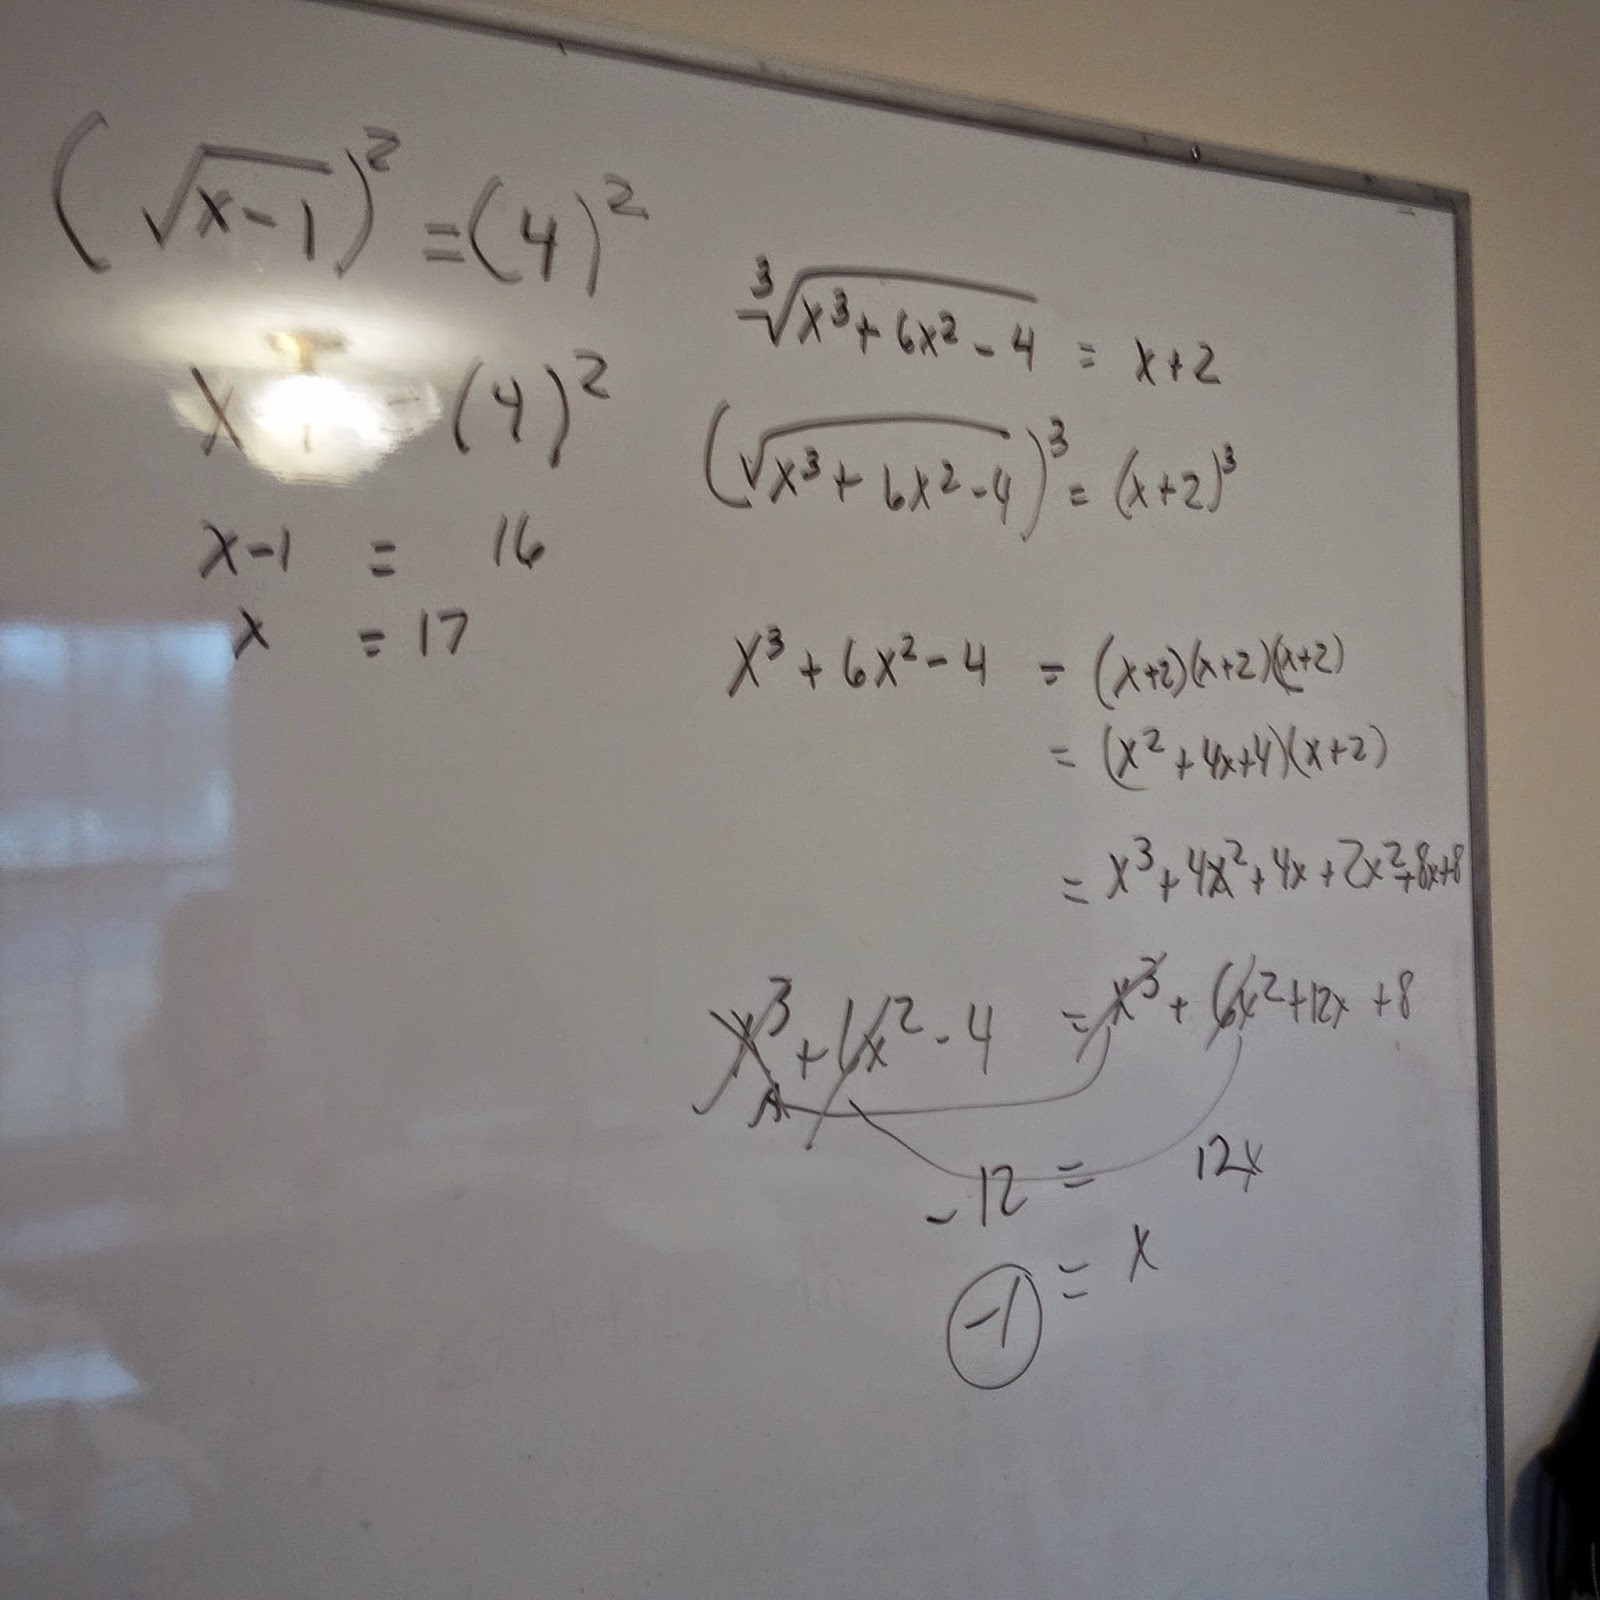 (√x-1)² = (4)²
x = (4)²
x-1 = 16
x = 17
³√x³+6x²-4 = x+2
(√x³+6x²-4)³ = (x+2)³
x³+6x²-4 = (x+2)(x+2)(x+2)
= (x²+4x+4)(x+2)
= x³+4x²+4x+2x²+8x+8
x³+6x²-4 = x³+6x²+12x+8
-12 = 12x
-1 = x